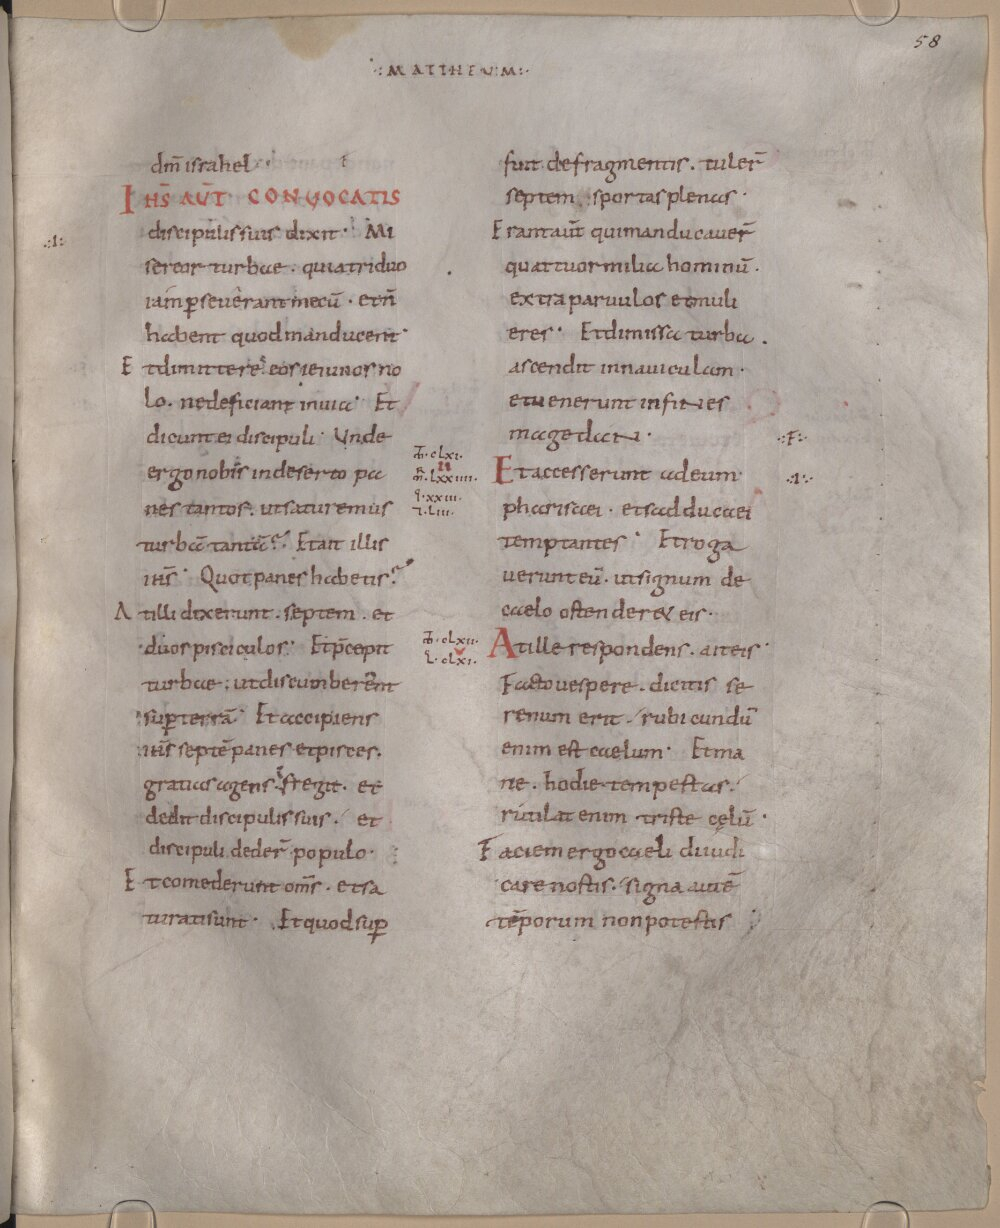 58
·:MATTHEUM:·
dm̄ israhel·
IHS̄ AUT̄ CONVOCATIS
discipulis suis dixit· Mi
·:1:·
sereor turbae· quia triduo
iam ꝑseuerant mecū· et n̄
habent quod manducent·
Et dimittere eos ieiunos no
lo· ne deficiant in uia· Et
dicunt ei discipuli· Unde
ergo nobis in deserto pa
nes tantos· ut saturemus
turbā tantā? Et ait illis
ihs̄· Quot panes habetis?
At illi dixerunt· septem· et
duos pisciculos· Et p̄cepit
turbae; ut discumberent
suꝑ terrā· Et accipiens
ihs̄ septē panes et pisces·
gratias agens fregit· et
dedit discipulis suis· et
discipuli deder̄ populo·
Et comederunt om̄s· et sa
turati sunt· Et quod suꝑ
·clxi·
·lxxuii·
·xxiii·
·liii·
·clxii·
l·clxi·
fuit de fragmentis· tuler̄
septem sportas plenas·
Erant aut̄ qui manducauer̄
quattuor milia hominū·
extra paruulos et muli
eres· Et dimissa turba·
ascendit in nauiculam·
et uenerunt in fines
magedan·
·:F:·
Et accesserunt ad eum
·:1:·
pharisaei· et sadducaei
temptantes· Et roga
uerunt eū· ut signum de
caelo ostenderet eis·
At ille respondens· ait eis·
Facto uespere· dicitis se
renum erit· rubicundū
enim est caelum· Et ma
ne· hodie tempestas·
rutilat enim triste cęlū·
Faciem ergo caeli diiudi
care nostis· signa autē
tēporum non potestis